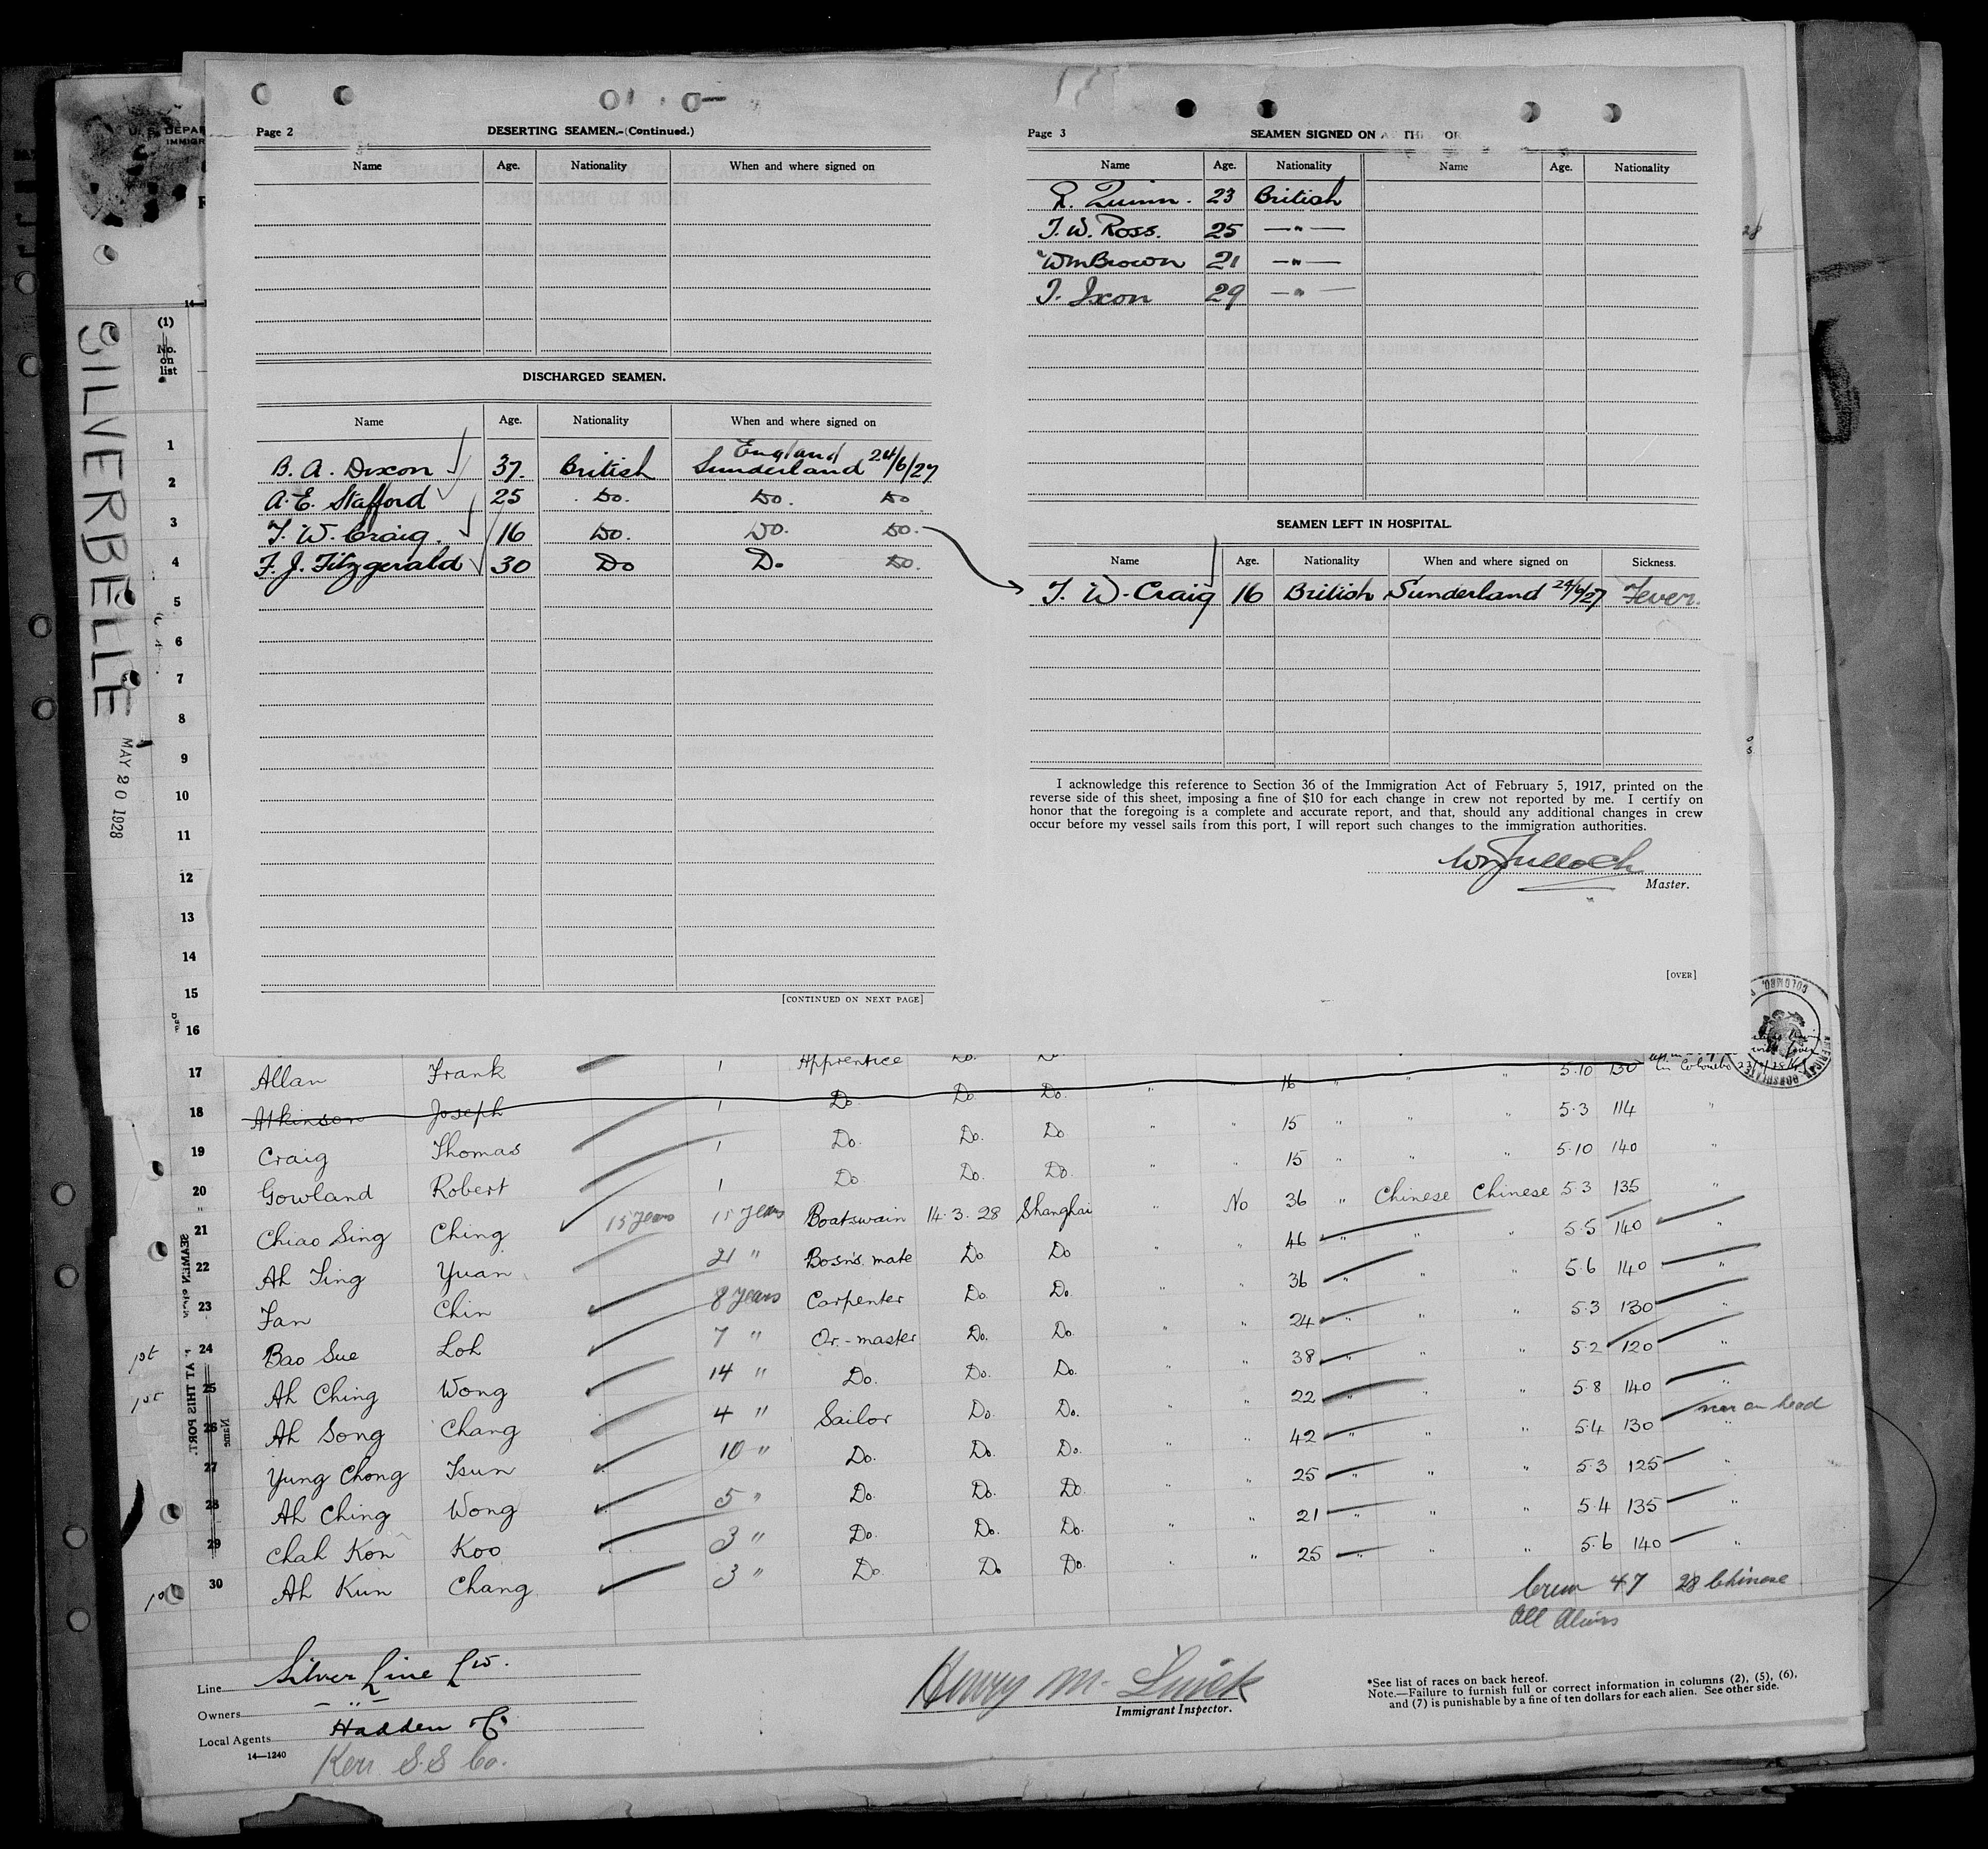 U. S. DEPAR
IMMIGR
SILVERBELLE
MAY 20 1928
Page 2
DESERTING SEAMEN.-(Continued.)
Name Age. Nationality When and where signed on
DISCHARGED SEAMEN.
Name Age. Nationality When and where signed on
England
B. A. Dixon 37. British Sunderland 24/6/27
A. E. Stafford 25 Do. Do. Do
T. W. Craig. 16 Do. Do. Do.
F. J. Fitzgerald 30 Do Do Do.
[CONTINUED ON NEXT PAGE]
Page 3
SEAMEN SIGNED ON
Name Age. Nationality Name Age. Nationality
R. Quinn. 23 British
T. W. Ross. 25 —"—
Wm Brown 21 —"—
T. Ixon 29 —"—
SEAMEN LEFT IN HOSPITAL.
Name Age. Nationality When and where signed on Sickness.
T. W. Craig 16 British Sunderland 24/6/27 Fever.
I acknowledge this reference to Section 36 of the Immigration Act of February 5, 1917, printed on the
reverse side of this sheet, imposing a fine of $10 for each change in crew not reported by me. I certify on
honor that the foregoing is a complete and accurate report, and that, should any additional changes in crew
occur before my vessel sails from this port, I will report such changes to the immigration authorities.
Master.
[OVER]
(1)
No.
on
list
1
2
3
4
5
6
7
8
9
10
11
12
13
14
15
16
17 Allan Frank 1 Apprentice Do. Do. 5.10 130
18 Atkinson Joseph 1 Do. Do. Do. " " 16 " " " 5.3 114 "
19 Craig Thomas 1 Do. Do. Do " " 15 " " " 5.10 140 "
20 Gowland Robert 1 Do Do. Do. " " 15 " " " 5.3 135 "
21 Chiao Sing Ching 15 years 15 years Boatswain 14.3.28 Shanghai " No 36 " Chinese Chinese 5.5 140 "
22 Ah Ting Yuan 21 " Bosn's mate Do Do " " 46 " " " 5.6 140 "
23 Fan Chin 8 years Carpenter Do. Do. " " 36 " " " 5.3 130 "
24 Bao Sue Loh 7 " Qr-master Do. Do. " " 24 " " " 5.2 120 "
25 Ah Ching Wong 14 " Do. Do. Do. " " 38 " " " 5.8 140 "
26 Ah Song Chang 4 " Sailor Do. Do. " " 22 " " " 5.4 130 " on head
27 Yung Chong Tsun 10 " Do. Do. Do. " " 42 " " " 5.3 125 "
28 Ah Ching Wong 5 " Do. Do. Do. " " 25 " " " 5.4 135 "
29 Chah Kon Koo 3 " Do. Do. Do. " " 21 " " " 5.6 140 "
30 Ah Kun Chang 3 " Do. Do Do. " " 25 " " "
Crew 47 28 Chinese
All Aliens
Line Silver Line
Owners —"—
Local Agents Hadden
14—1240
Kerr S.S Co.
Henry M.
Immigrant Inspector.
*See list of races on back hereof.
Note.—Failure to furnish full or correct information in columns (2), (5), (6),
and (7) is punishable by a fine of ten dollars for each alien. See other side.